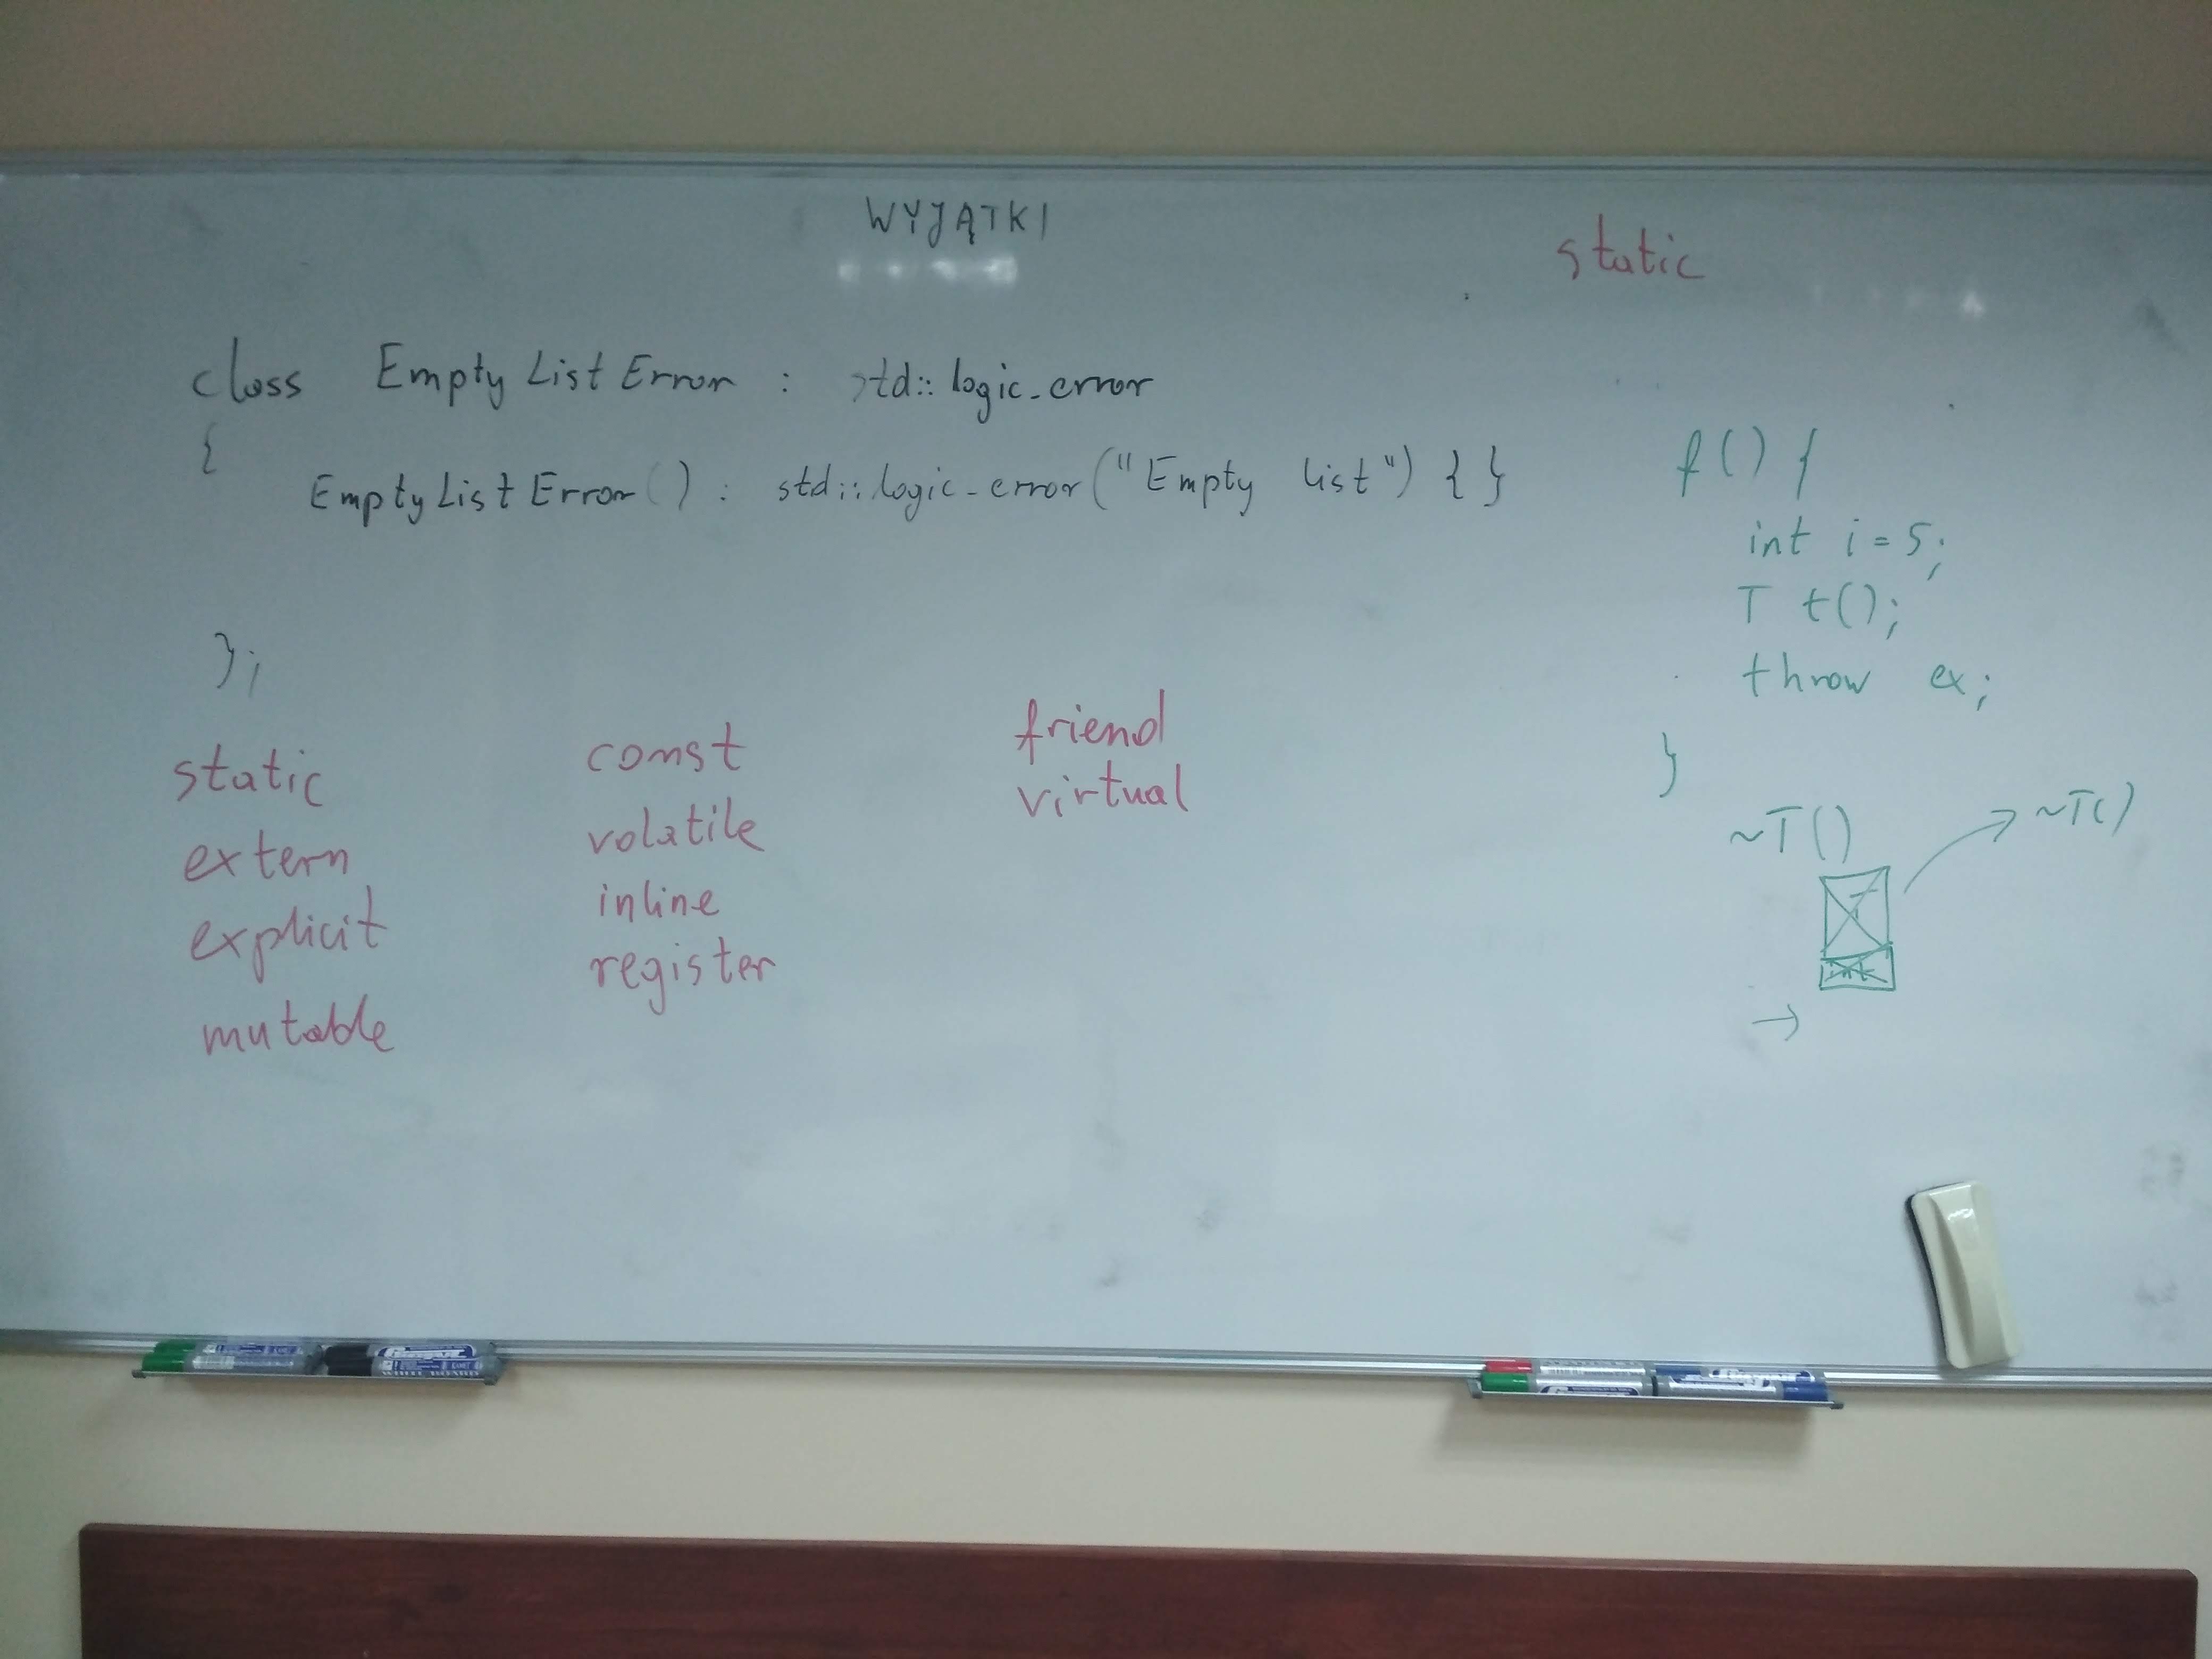 WYJĄTKI
static
class EmptyListError : std::logic_error
{
EmptyListError() : std::logic_error("Empty list") { }
};
static
extern
explicit
mutable
const
volatile
inline
register
friend
virtual
f() {
int i = 5;
T t();
throw ex;
}
~T()
→ ~T()
T
int
→